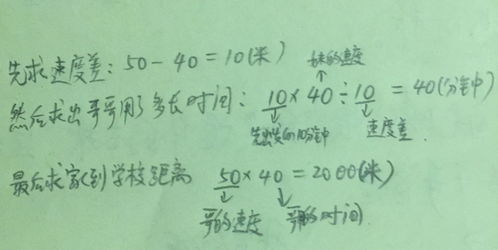 先求速度差：50-40=10(米)
妹的速度
↑
然后求出哥哥用了多长时间：10×40÷10=40(分钟)
↓ ↓
先出发的10分钟 速度差.
最后求家到学校距离 50×40=2000(米)
↓ ↓
哥的速度 哥的时间